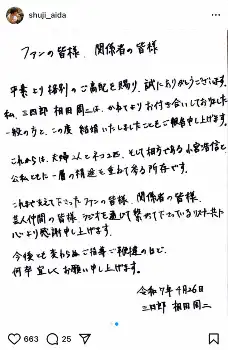 shuji_aida
ファンの皆様、関係者の皆様
平素より格別のご高配を賜り、誠にありがとうございます。
私、三四郎 相田周二は、かねてよりお付き合いしておりました
一般の方と、この度 結婚いたしましたことをご報告申し上げます。
これからは、夫婦2人とネコ2匹、そして相方である小宮浩信と
公私ともに一層の精進を重ねて参る所存です。
これまで支えて下さったファンの皆様、関係者の皆様、
芸人仲間の皆様、ラジオを通じて繋がって下さっているリスナー共に
心より感謝申し上げます。
今後とも変わらぬご指導ご鞭撻の程、
何卒宜しくお願い申し上げます。
令和7年4月26日
三四郎 相田周二
663 25